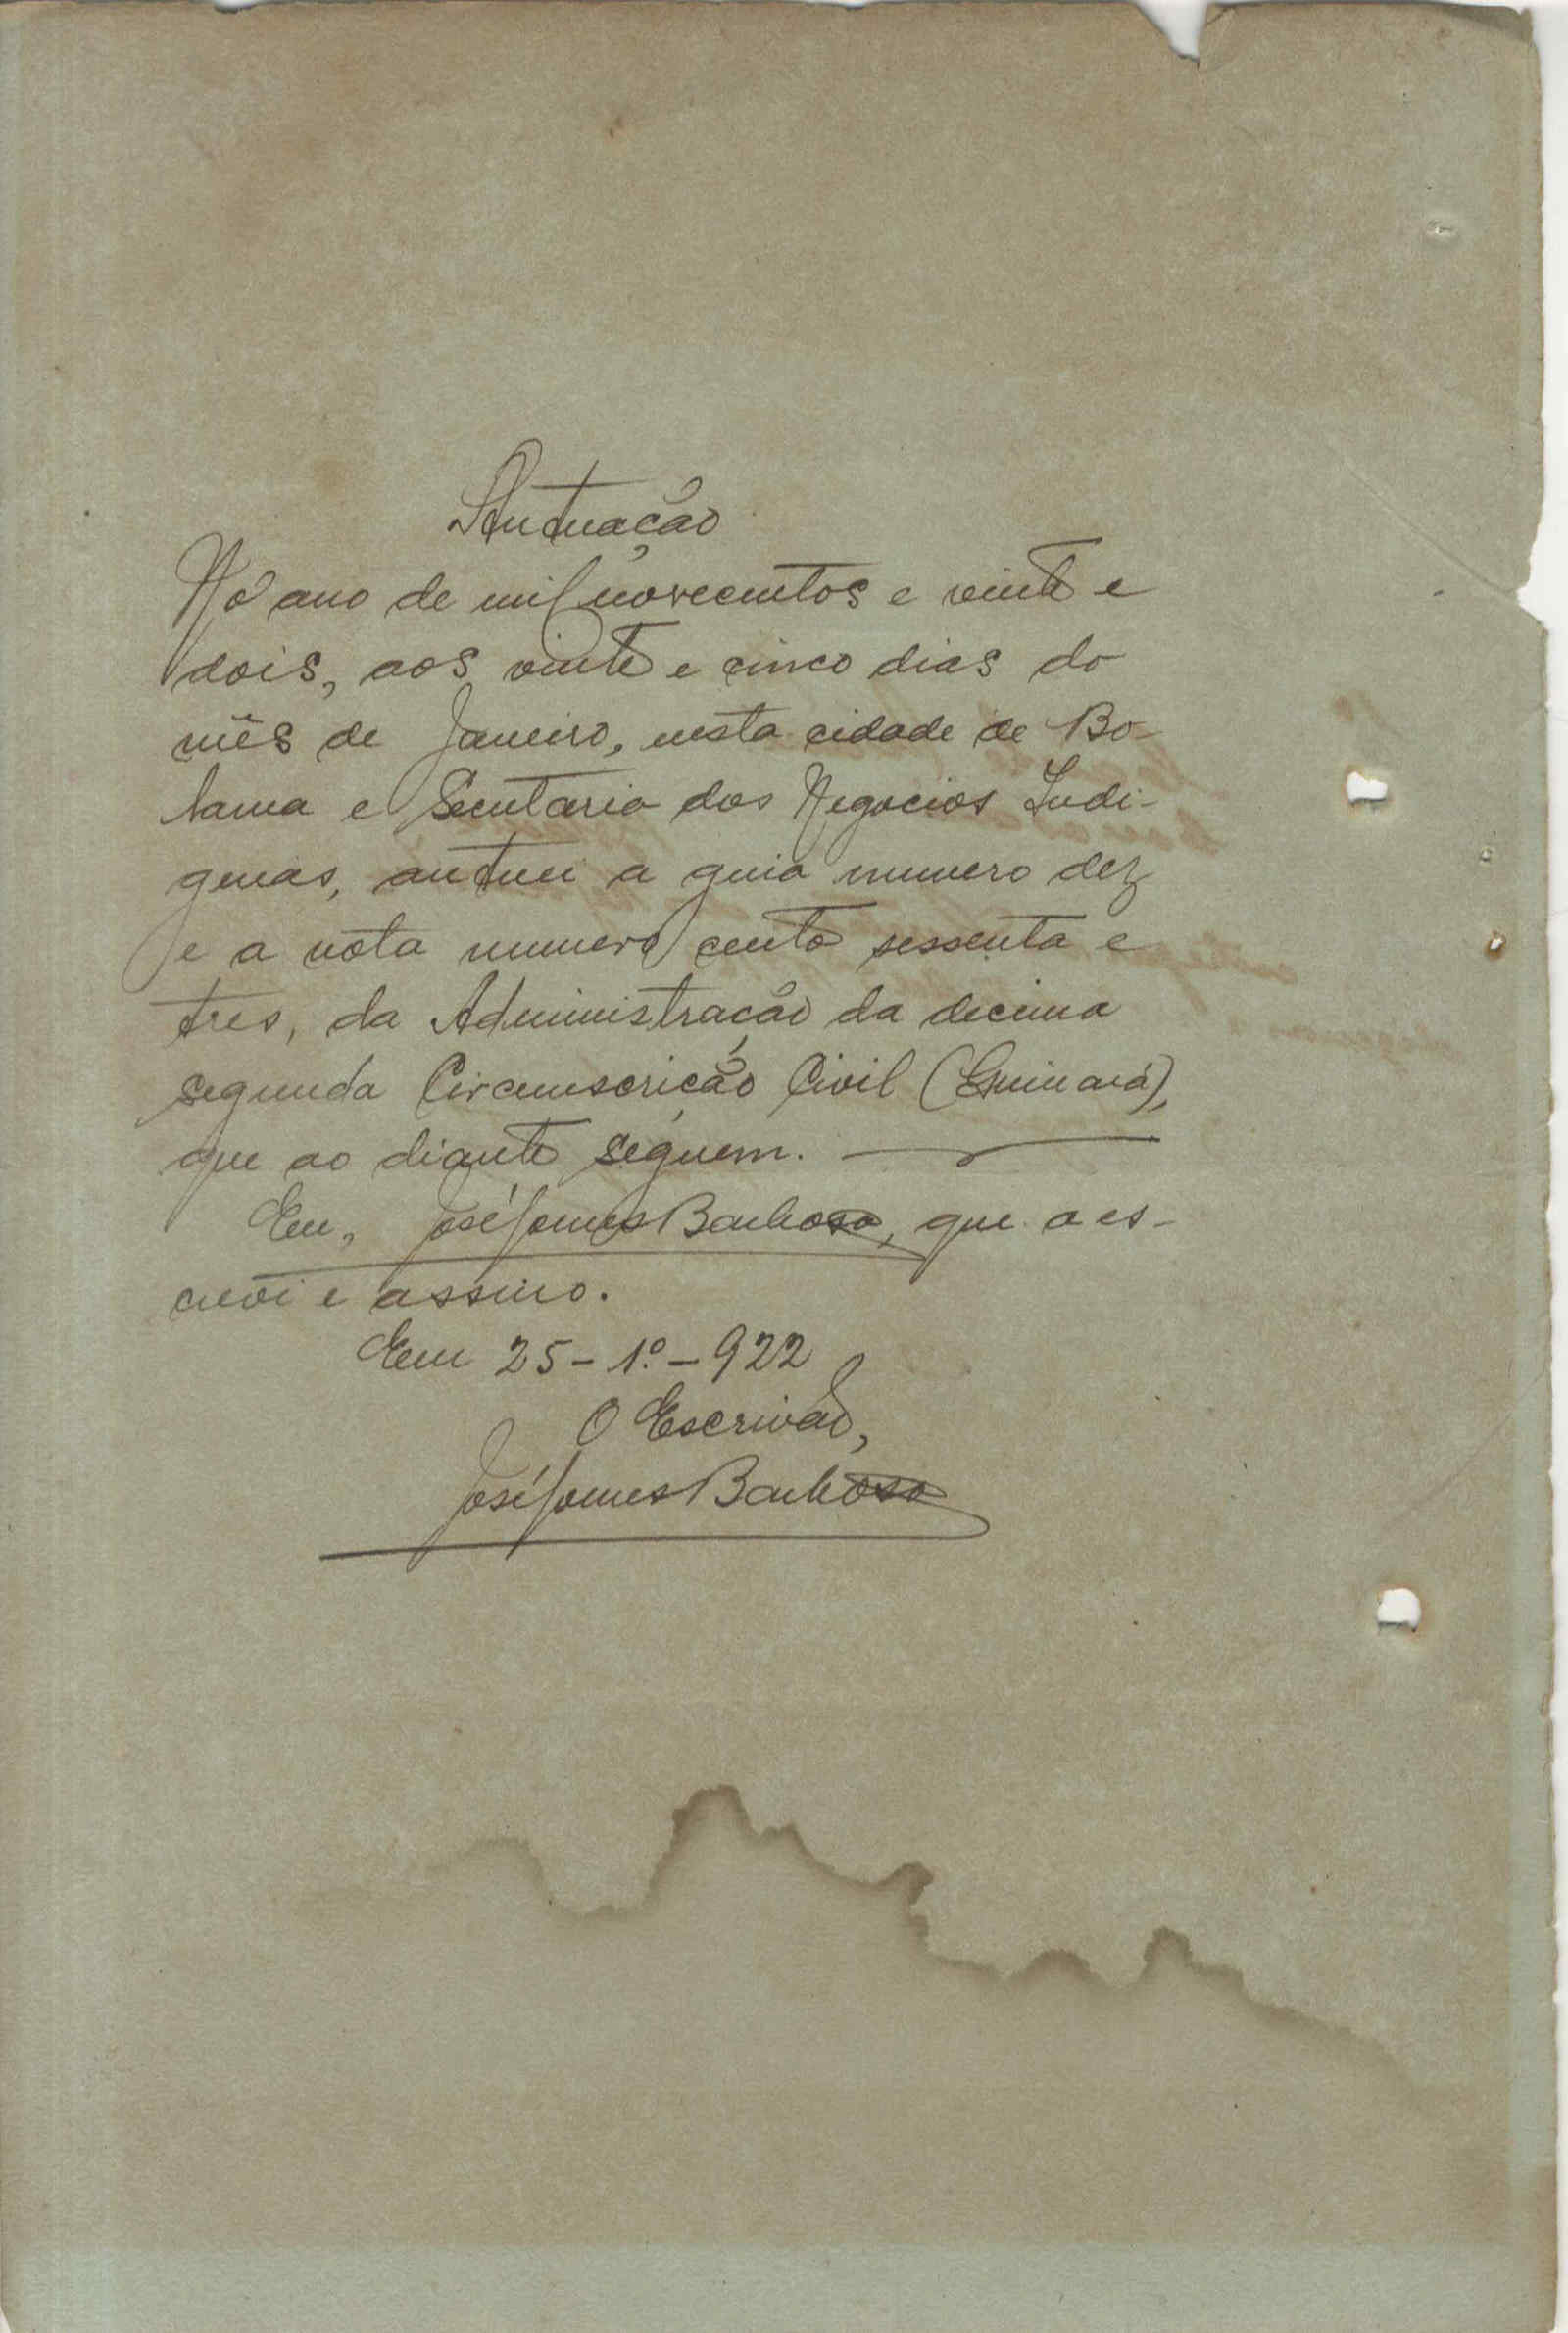 Autuação
No ano de mil novecentos e vinte e
dois, aos vinte e cinco dias do
mês de Janeiro, nesta cidade de Bo-
lama e Secretaria dos Negocios Indi-
genas, autuei a guia numero dez
e a nota numero cento sessenta e
tres, da Administração da decima
segunda Circunscrição Civil (Quinará),
que ao diante seguem.
Eu, José Gomes Barbosa, que a es-
crevi e assino.
Em 25-1º-922
O Escrivão,
José Gomes Barbosa